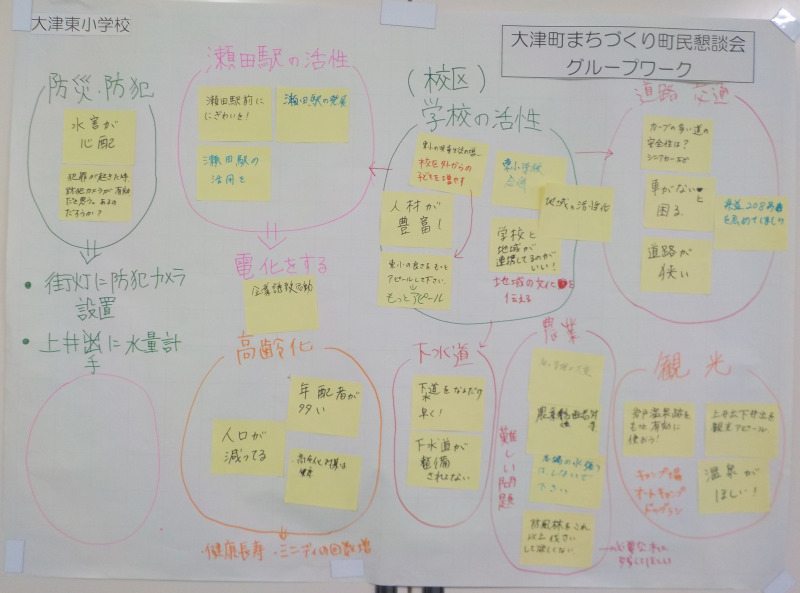 大津東小学校
大津町まちづくり町民懇談会
グループワーク
防災・防犯
水害が
心配
犯罪が起きた時
防犯カメラが有効
だと思う。あるの
だろうか?
街灯に防犯カメラ
設置
上井手に水量計
瀬田駅の活性
瀬田駅前に
にぎわいを!
瀬田駅の発展
瀬田駅の
活用を
電化をする
企業誘致活動
(校区)
学校の活性
校区外からの
子どもを増やす
東小学校
人材が
豊富!
学校と
地域が
連携してるのが
いい!
地域の活性化
東小の良さをもっと
アピールして下さい。
もっとアピール
地域の文化を
伝える
道路 交通
カーブの多い道の
安全性は?
車がないと
困る
道路が
狭い
高齢化
年配者が
多い
人口が
減ってる
・健康長寿 ・ミニデイの回数増
下水道
下水道をなるだけ
早く!
下水道が
整備
されてない
農業
難しい問題
下さい
防風林をこれ
以上伐さい
して欲しくない
観光
岩戸温泉跡を
もっと有効に
使おう!
上井手下井手を
観光アピール
キャンプ場
オートキャンプ
ドッグラン
温泉が
ほしい!